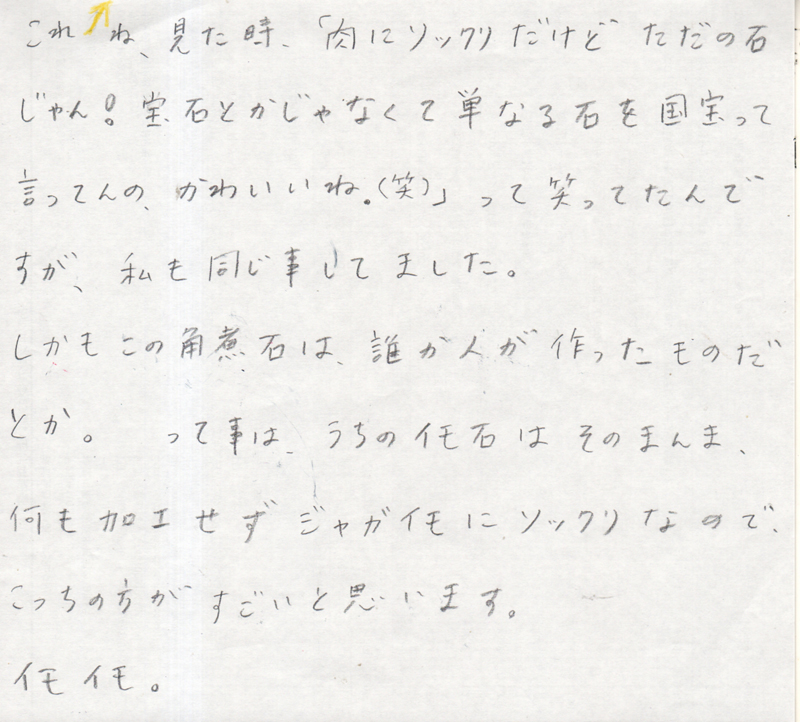 これね、見た時、「肉にソックリだけど ただの石
じゃん!宝石とかじゃなくて単なる石を国宝って
言ってんの、かわいいね。(笑)」って笑ってたんで
すが、私も同じ事してました。
しかもこの角煮石は、誰か人が作ったものだ
とか。 って事は、うちのイモ石はそのまんま、
何も加工せずジャガイモにソックリなので、
こっちの方がすごいと思います。
イモイモ。